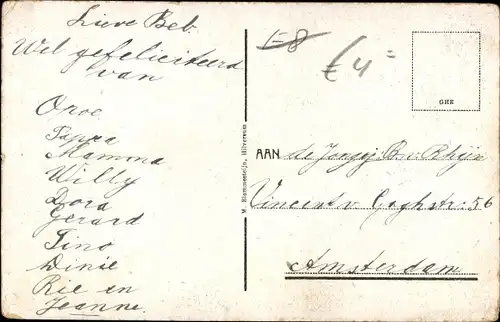 Lieve Bet.
Wel gefeliciteerd
van
Opoe
Pappa
Mamma
Willy
Dora
Gerard
Tino
Dinie
Rie en
Jeanne.
M. Blommesteijn, Hilversum
€ 4 =
GKE
AAN de Jongej: B. v. Rhijn
Vincent v. Goghstr: 56
Amsterdam